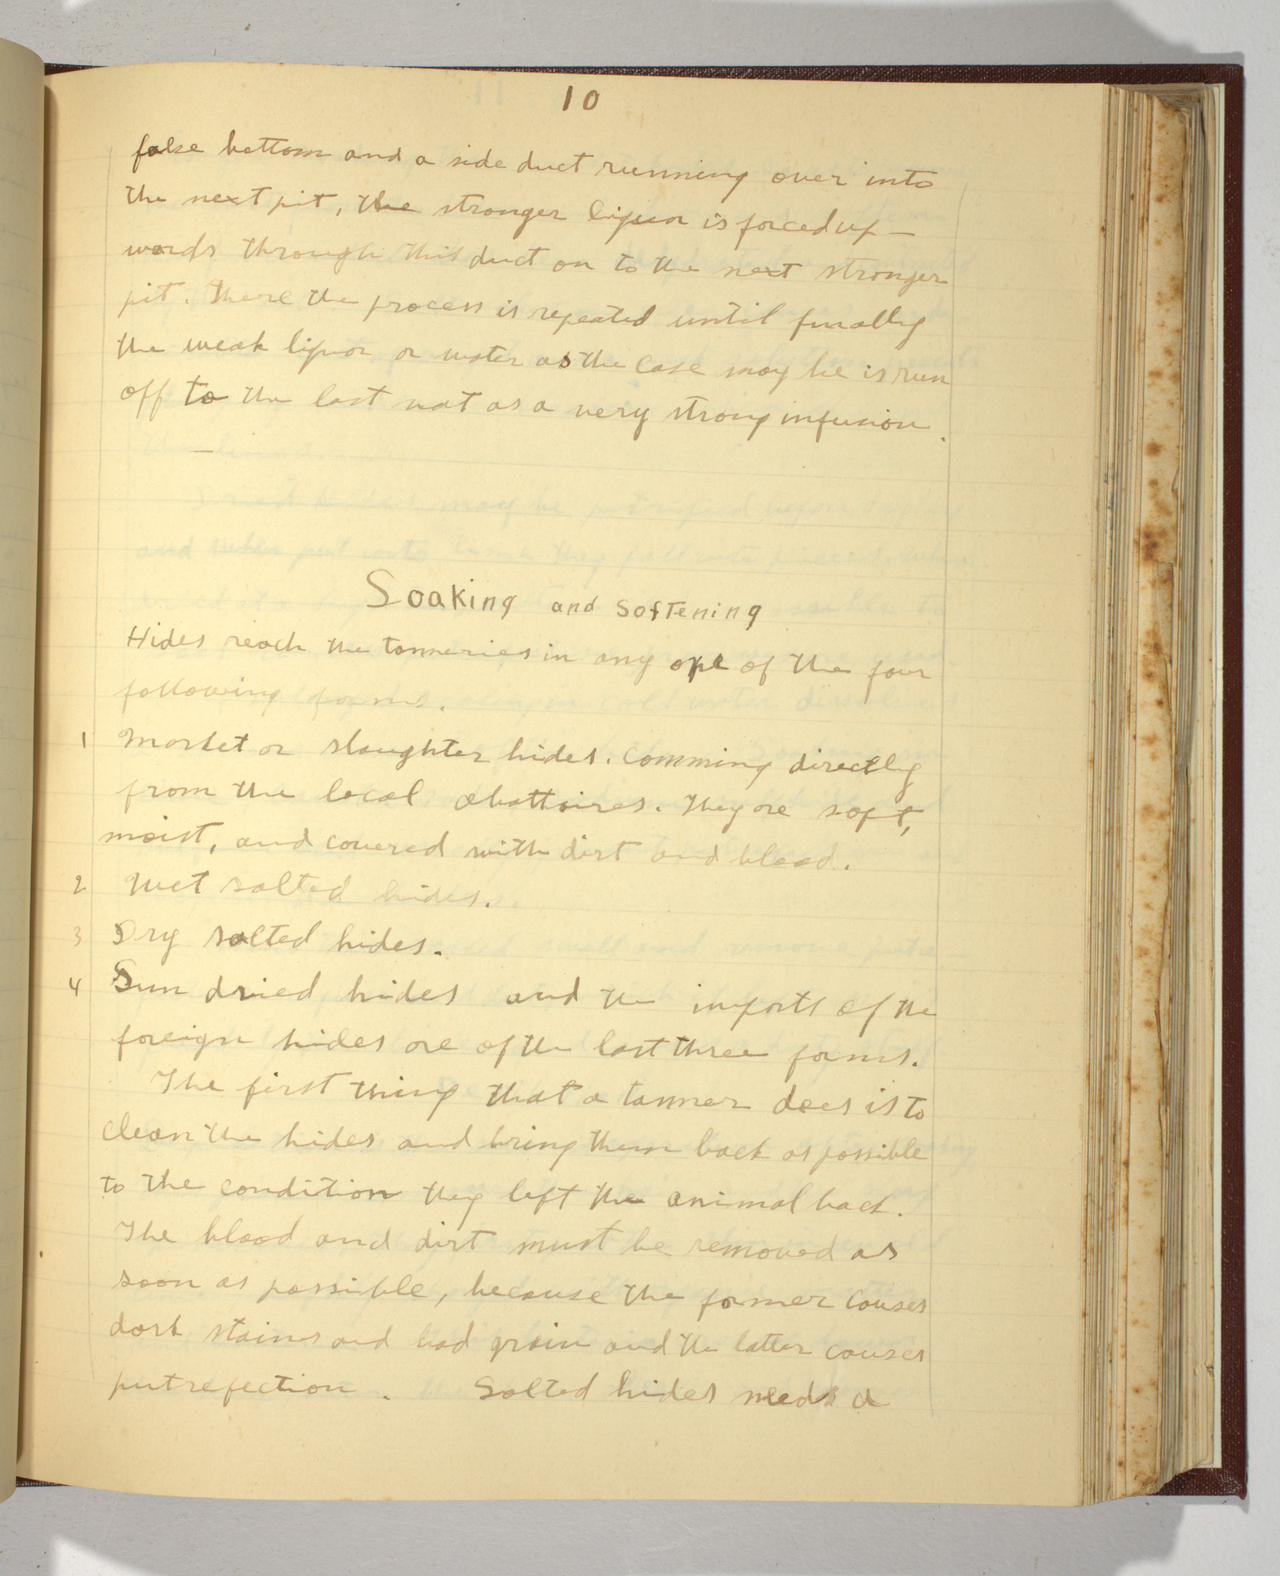 10
false bottom and a side duct running over into
the next pit, the stronger liquor is forced up-
wards through this duct on to the next stronger
pit. There the process is repeated until finally
the weak liquor or water as the case may be is run
off to the last vat as a very strong infusion.
Soaking and Softening
Hides reach the tanneries in any one of the four
following forms.
1 Market or slaughter hides. Comming directly
from the local abattoires. They are soft,
moist, and covered with dirt and blood.
2 Wet salted hides.
3 Dry salted hides.
4 Sun dried hides and the imports of the
foreign hides are of the last three forms.
The first thing that a tanner does is to
clean the hides and bring them back as possible
to the condition they left the animal back.
The blood and dirt must be removed as
soon as possible, because the former causes
dark stains and bad grain and the latter causes
putrefection. Salted hides needs a